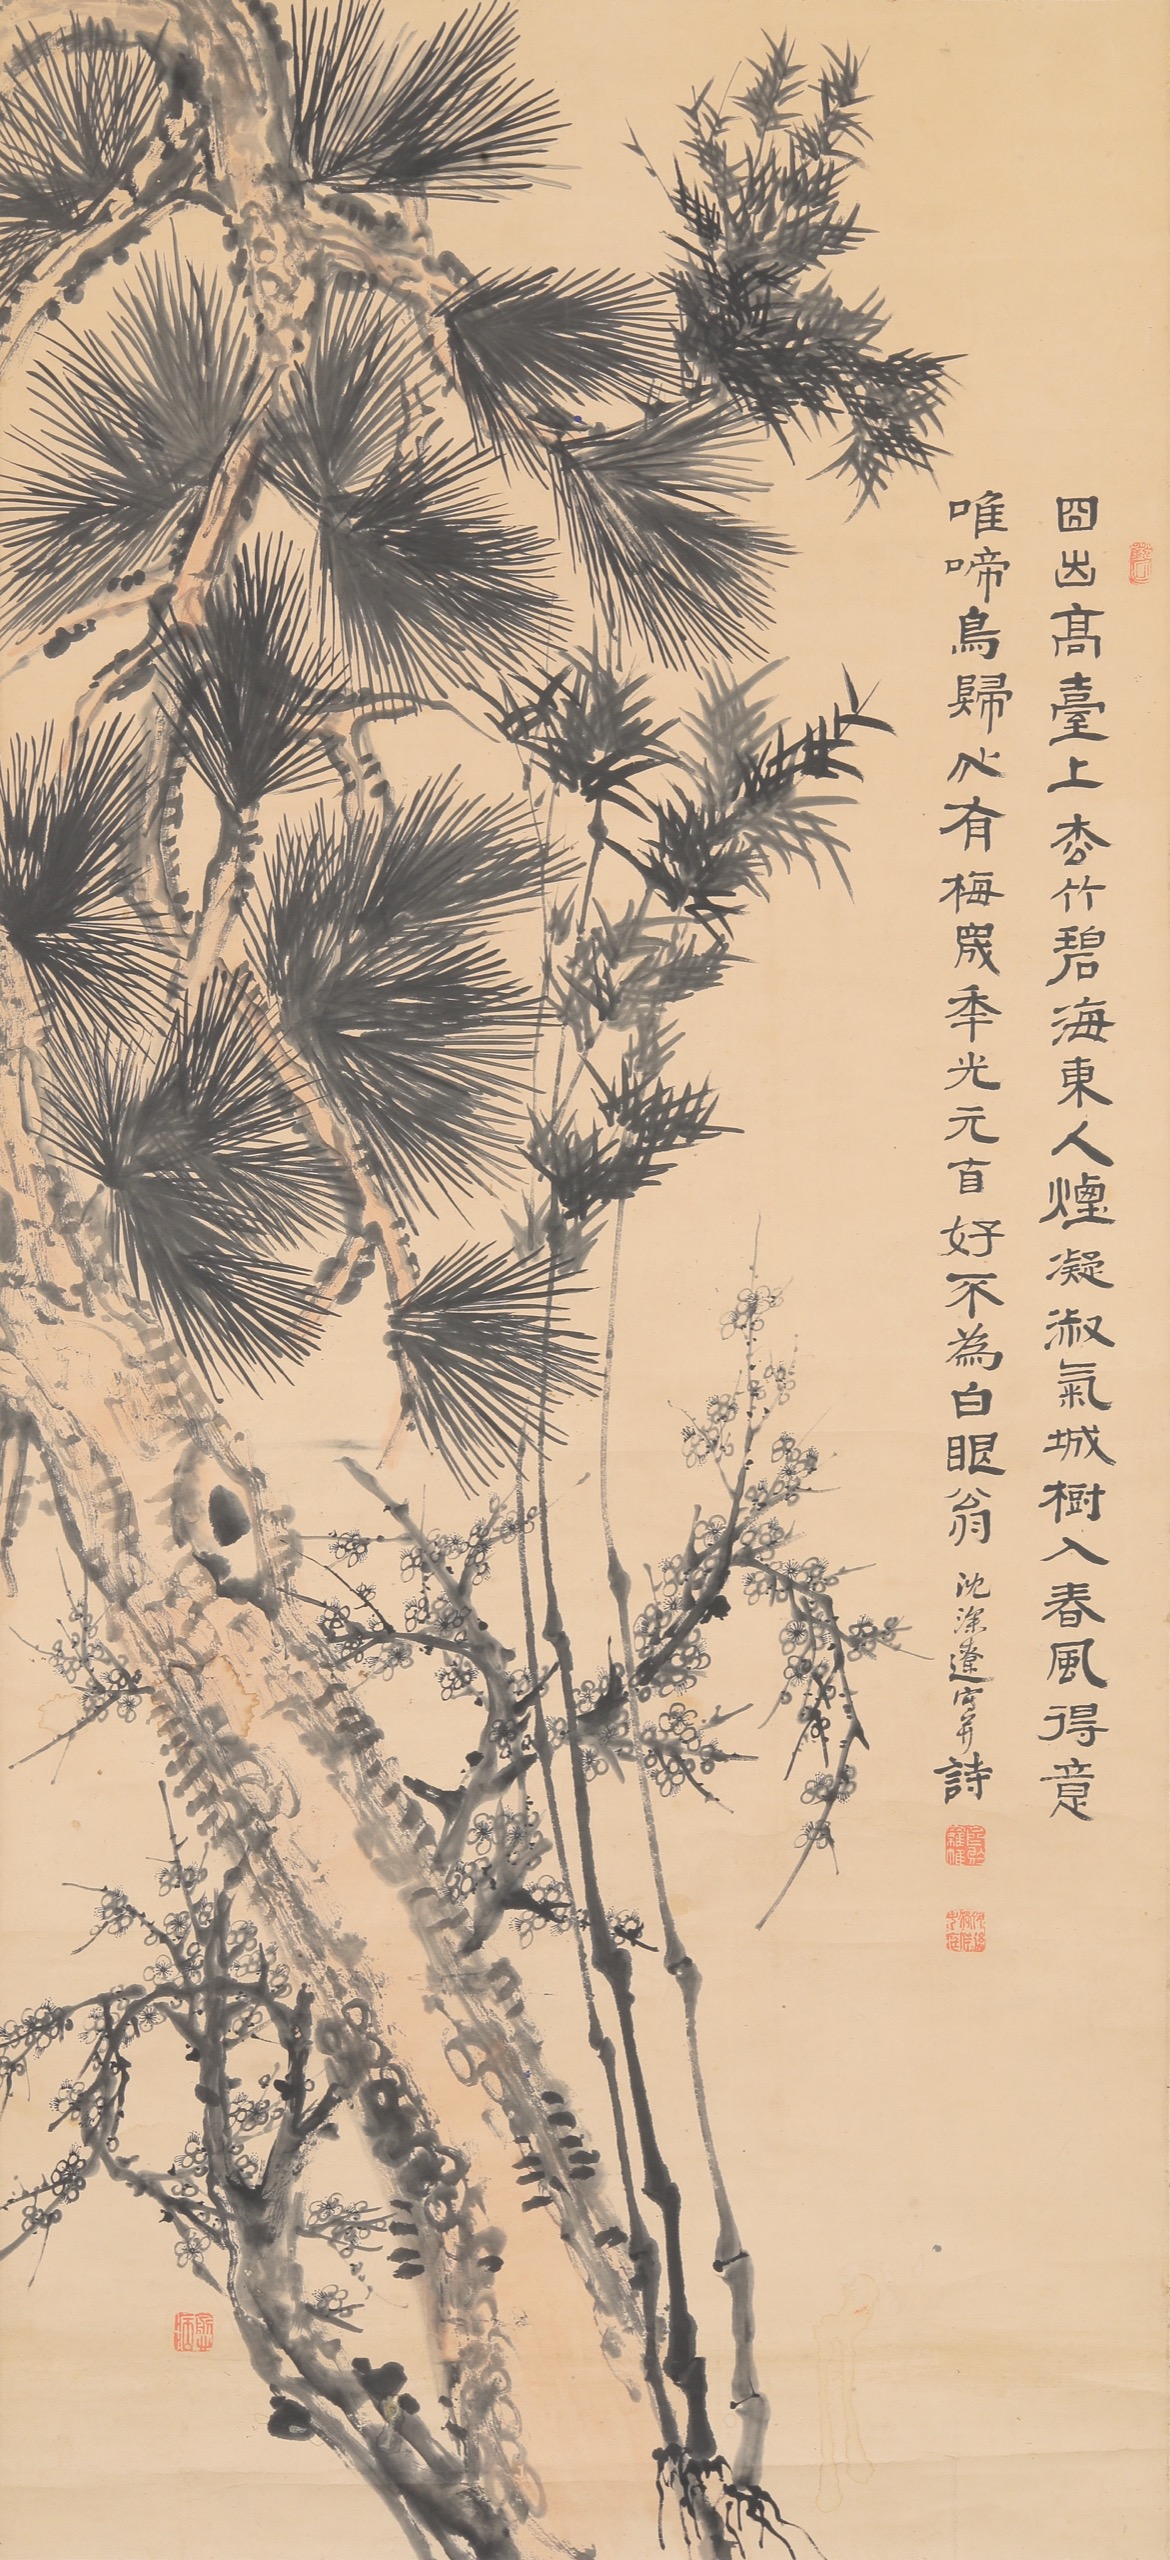 囧出高臺上枩竹碧海東人煙凝淑氣城樹入春風得意
唯啼鳥歸心有梅季光元自好不為白眼翁 沈寫并詩